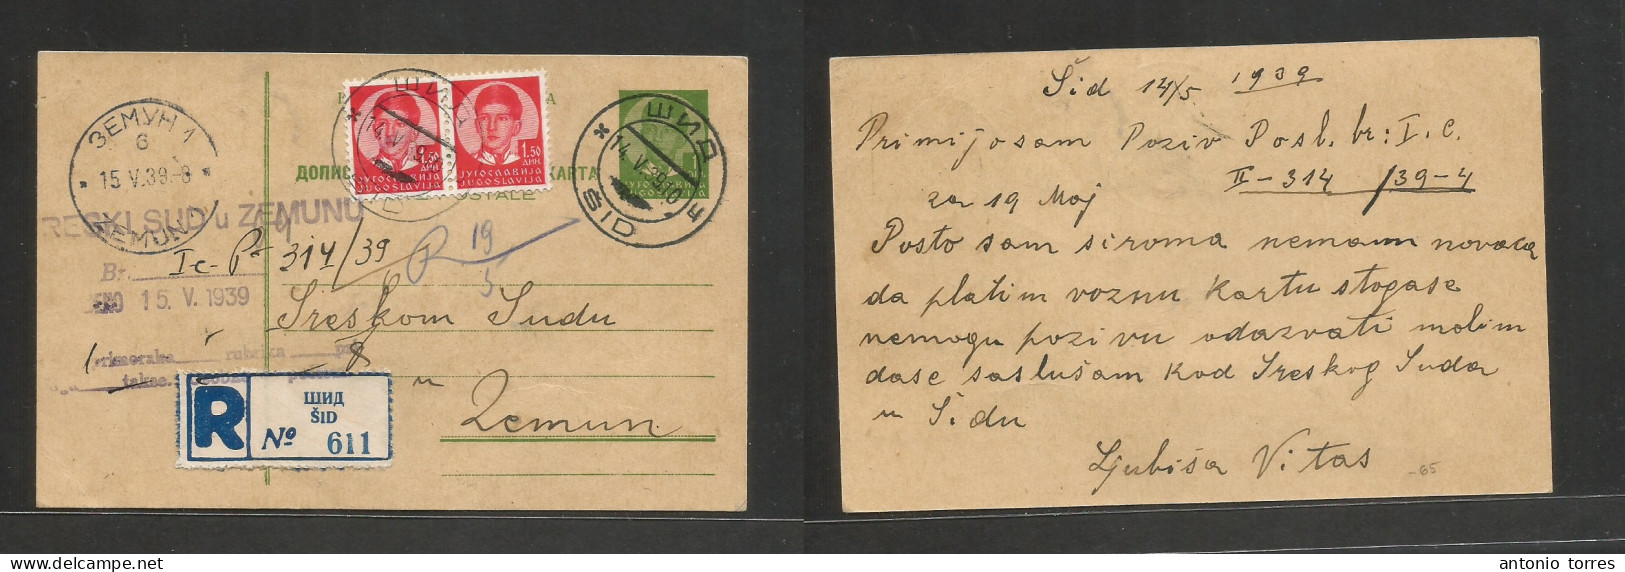 ЗЕМУН 1
6
15 V.39.-8
ZEMUN 1
RESKI SUD u ZEMUNU
Br.
15. V. 1939
ДОПИС КАРТА
POSTALE
ШИД
14. V. 39
ŠID
1.50 ДИН. 1.50 ДИН.
ЈУГОСЛАВИЈА ЈУГОСЛАВИЈА
JUGOSLAVIJA JUGOSLAVIJA
ШИД
14. V. 39.10
ŠID
Ic-P 314/39
R 19
5
Sreskom Sudu
u
Zemun
rimeraka rubrika
takse.
R
ШИД
ŠID
Nº 611
Šid 14/5 1939
Primijosam Poziv Posl. br: I. C.
II-314 /39-4
za 19 Maj
Posto sam siroma nemam novaca
da platim voznu kartu stogase
nemogu pozivu odazvati molim
dase saslušam kod Sreskog Suda
u Šidu
Ljubiša Vitas
-65
antonio torres